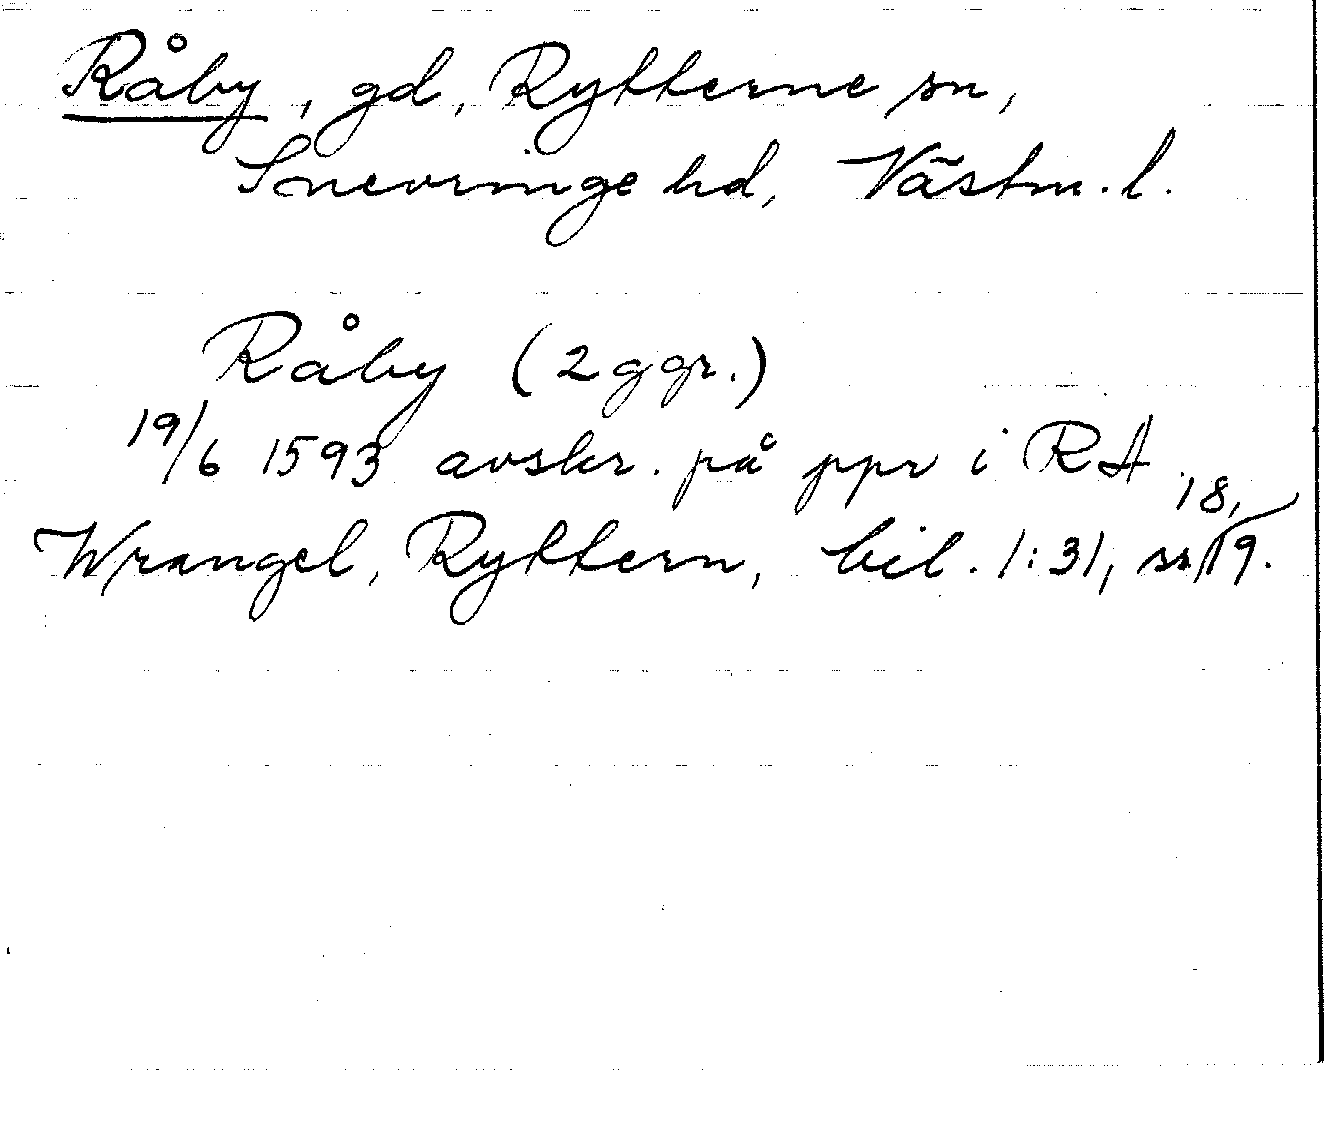 Råby, gd, Rytterne sn,
Snevringe hd, Västm. l.
Råby (2 ggr.)
19/6 1593 avskr. på ppr i RA.
Wrangel, Ryttern, bil. 1:31, ss 18, 19.